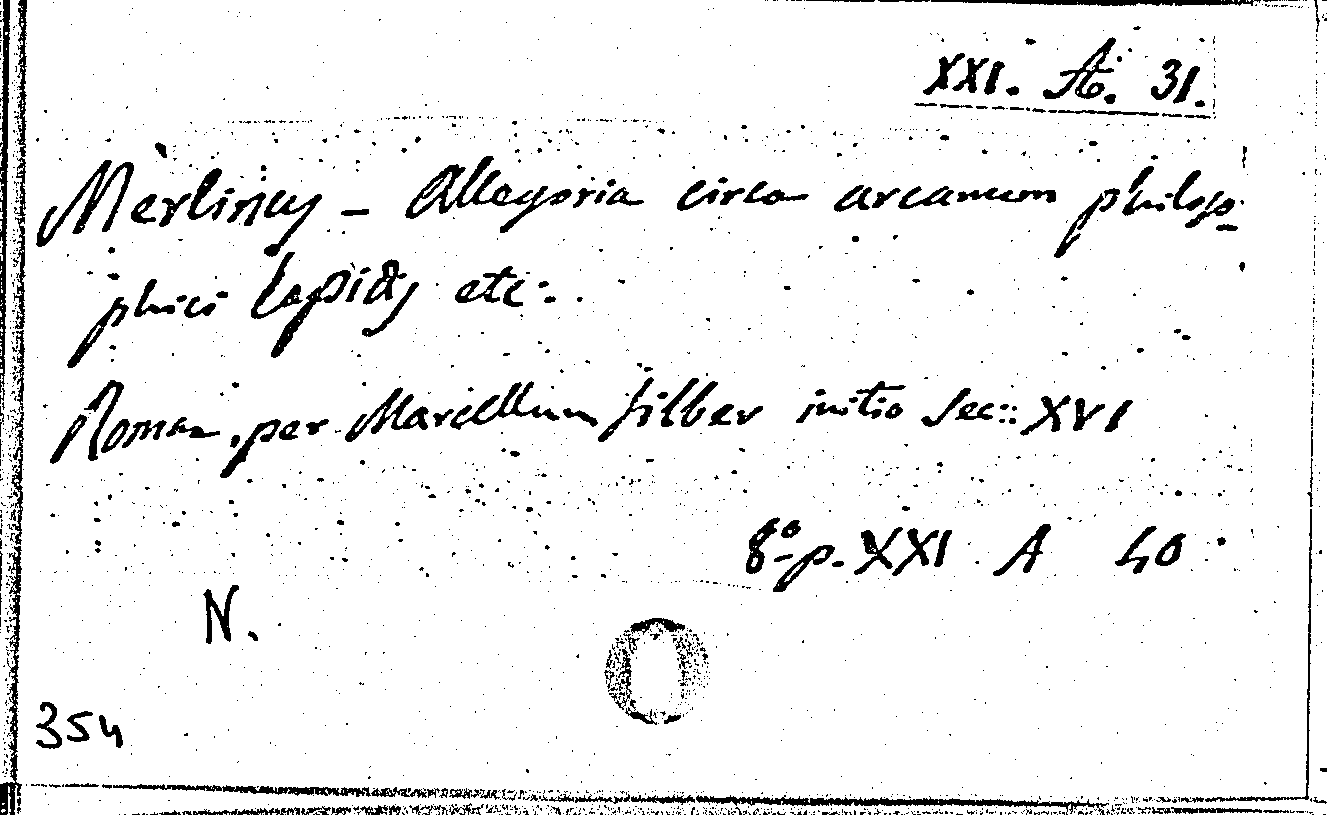 XXI. A. 31.
Merlinus – Allegoria circa arcanum philoso-
phici lapidis etc.
Romae, per Marcellum Silber initio Sec: XVI
8º p. XXI A 40
N.
354